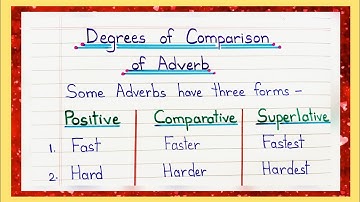 Degrees of Comparison
of Adverb
Some Adverbs have three forms –
Positive Comparative Superlative
1. Fast Faster Fastest
2. Hard Harder Hardest